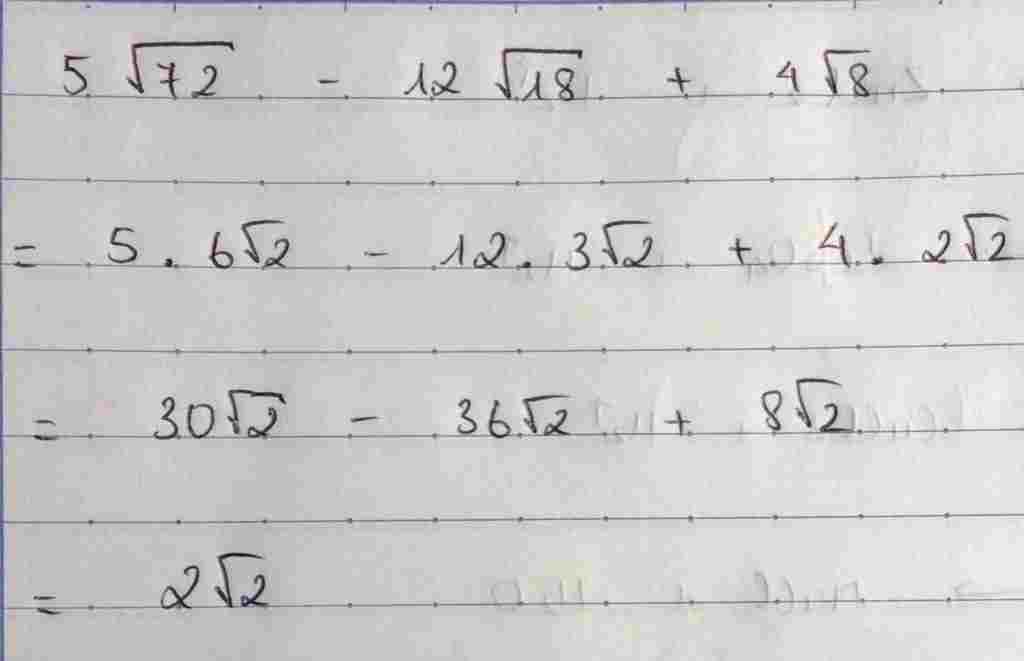 5 √72 - 12 √18 + 4 √8
= 5 . 6√2 - 12 . 3√2 + 4 . 2√2
= 30√2 - 36√2 + 8√2
= 2√2